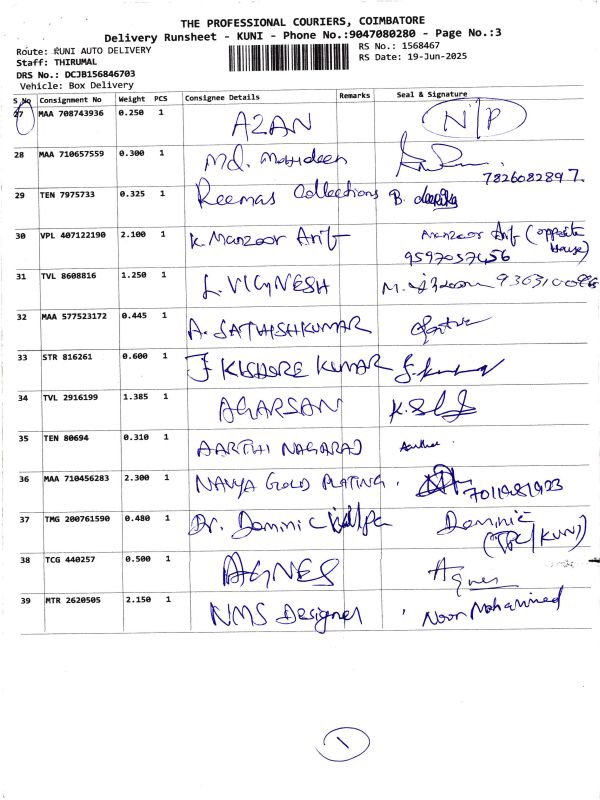 THE PROFESSIONAL COURIERS, COIMBATORE
Delivery Runsheet - KUNI - Phone No.:9047080280 - Page No.:3
Route: KUNI AUTO DELIVERY
Staff: THIRUMAL
DRS No.: DCJB156846703
Vehicle: Box Delivery
RS No.: 1568467
RS Date: 19-Jun-2025
S.No Consignment No Weight PCS Consignee Details Remarks Seal & Signature
27 MAA 708743936 0.250 1 AZAN N/P
28 MAA 710657559 0.300 1 Md. Mohideen 7826082897
29 TEN 7975733 0.325 1 Reemas Collections B.
30 VPL 407122190 2.100 1 K. Manzoor Arif Manzoor Arif (opposite House)
9597057456
31 TVL 8608816 1.250 1 L. VIGNESH M.
32 MAA 577523172 0.445 1 A. SATHISHKUMAR
33 STR 816261 0.600 1 J KISHORE KUMAR
34 TVL 2916199 1.385 1 AGARSAN K.
35 TEN 80694 0.310 1 AARTHI NAGARAJ
36 MAA 710456283 2.300 1 NAVYA GOLD PLATING.
37 TMG 200761590 0.480 1 Dr. Dominic Dominic
(TPC/KUNI)
38 TCG 440257 0.500 1 AGNES Agnes
39 MTR 2620505 2.150 1 NMS Designer Noor Mohammed
1